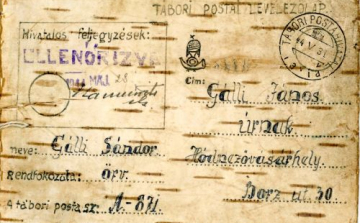 TÁBORI POSTAI LEVELEZŐLAP
Hivatalos feljegyzések:
ELLENŐRIZVE
TÁBORI POSTAHIVATAL
Cím: Gálli János
úrnak
Hódmezővásárhely.
Dorz ut 30
neve: Gálli Sándor
Rendfokozata: örv.
A tábori posta sz. A-871